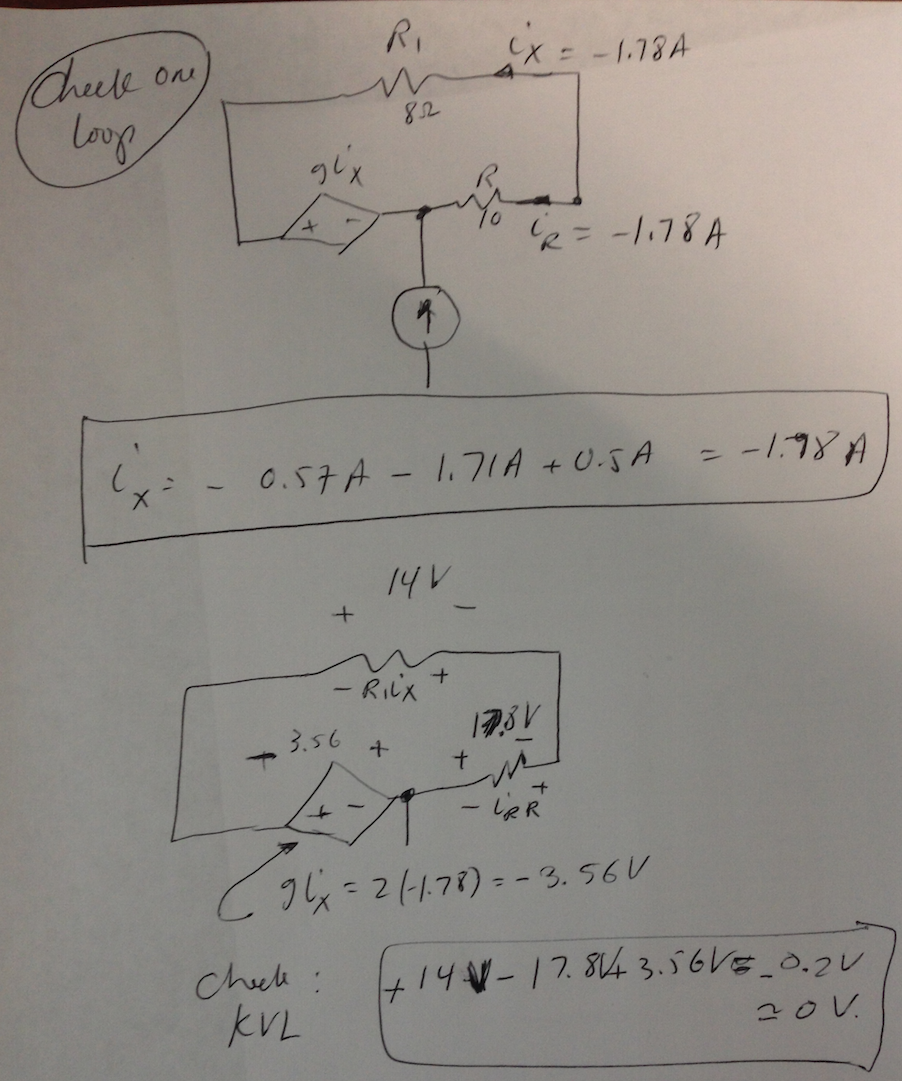 Check one
loop
R₁
iₓ = -1.78A
8Ω
giₓ
+ -
R
10
i_R = -1.78A
iₓ = - 0.57A - 1.71A + 0.5A = -1.78A
14V
+ -
- R₁iₓ +
17.8V
- 3.56 +
+ -
+ -
- i_R R +
giₓ = 2(-1.78) = -3.56V
Check :
KVL
+14V - 17.8V + 3.56V = -0.2V
≃ 0V.